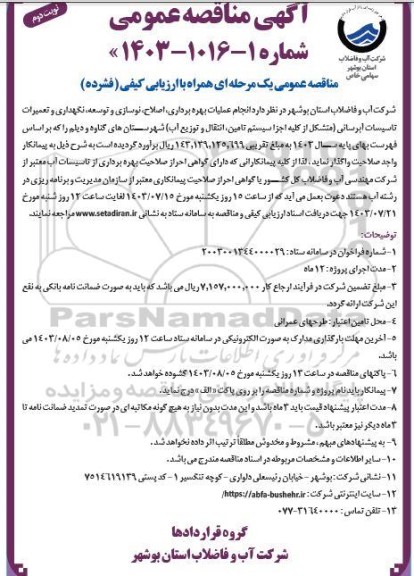 نوبت دوم
آگهی مناقصه عمومی
شماره ۱-۱۰۱۶-۱۴۰۳ »
شرکت آب و فاضلاب
استان بوشهر
سهامی خاص
مناقصه عمومی یک مرحله ای همراه با ارزیابی کیفی ( فشرده )
شرکت آب و فاضلاب استان بوشهر در نظر دارد انجام عملیات بهره برداری، اصلاح، نوسازی و توسعه، نگهداری و تعمیرات
تاسیسات آبرسانی (متشکل از کلیه اجزا سیستم تامین، انتقال و توزیع آب) شهرستان های گناوه و دیلم را که بر اساس
فهرست بهای پایه سال ۱۴۰۳ به مبلغ تقریبی ۱۴۳,۱۳۹,۱۲۵,۶۶۹ ریال برآورد گردیده است به شرح ذیل به پیمانکار
واجد صلاحیت واگذار نماید . لذا از کلیه پیمانکارانی که دارای گواهی احراز صلاحیت بهره برداری از تاسیسات آب معتبر از
شرکت مهندسی آب و فاضلاب کل کشور یا گواهی احراز صلاحیت پیمانکاری معتبر از سازمان مدیریت و برنامه ریزی در
رشته آب هستند دعوت بعمل می آید که از ساعت ۱۵ روز یکشنبه مورخ ۱۴۰۳/۰۷/۱۵ لغایت ساعت ۱۲ روز شنبه مورخ
۱۴۰۳/۰۷/۲۱ جهت دریافت اسناد ارزیابی کیفی و مناقصه به سامانه ستاد به نشانی www.setadiran.ir مراجعه نمایند.
توضیحات:
۱- شماره فراخوان در سامانه ستاد : ۲۰۰۳۰۰۱۳۴۴۰۰۰۰۲۹
۲- مدت اجرای پروژه : ۱۲ ماه
۳- مبلغ تضمین شرکت در فرآیند ارجاع کار ۷,۱۵۷,۰۰۰,۰۰۰ ریال می باشد که باید به صورت ضمانت نامه بانکی به نفع
این شرکت ارائه گردد.
۴- محل تامین اعتبار : طرحهای عمرانی
۵- آخرین مهلت بارگذاری مدارک به صورت الکترونیکی در سامانه ستاد ساعت ۱۲ روز یکشنبه مورخ ۱۴۰۳/۰۸/۰۵ می
باشد.
۶- پاکتهای مناقصه در ساعت ۱۳ روز یکشنبه مورخ ۱۴۰۳/۰۸/۰۵ گشوده خواهد شد.
۷- پیمانکار باید نام پروژه و شماره مناقصه را بر روی پاکت «الف» درج نماید.
۸- مدت اعتبار پیشنهاد قیمت باید ۳ ماه باشد و این مدت بدون نیاز به هیچ گونه مکاتبه ای در صورت تمدید ضمانت نامه تا
۳ ماه دیگر نیز معتبر باشد.
۹- به پیشنهادهای مبهم، مشروط و مخدوش مطلقاً ترتیب اثر داده نخواهد شد.
۱۰- سایر اطلاعات و مشخصات مربوطه در اسناد مناقصه مندرج می باشد.
۱۱- نشانی شرکت: بوشهر - خیابان رئیسعلی دلواری - کوچه تنگسیر ۱ - کد پستی ۷۵۱۴۶۱۹۱۳۹
۱۲- سایت اینترنتی شرکت : https://abfa-bushehr.ir/
۱۳- تلفن تماس : ۳۱۶۴۰۰۰۰-۰۷۷
گروه قراردادها
شرکت آب و فاضلاب استان بوشهر
ParsNamadData
۰۲۱-۸۸۳۴۹۶۷۰-۵